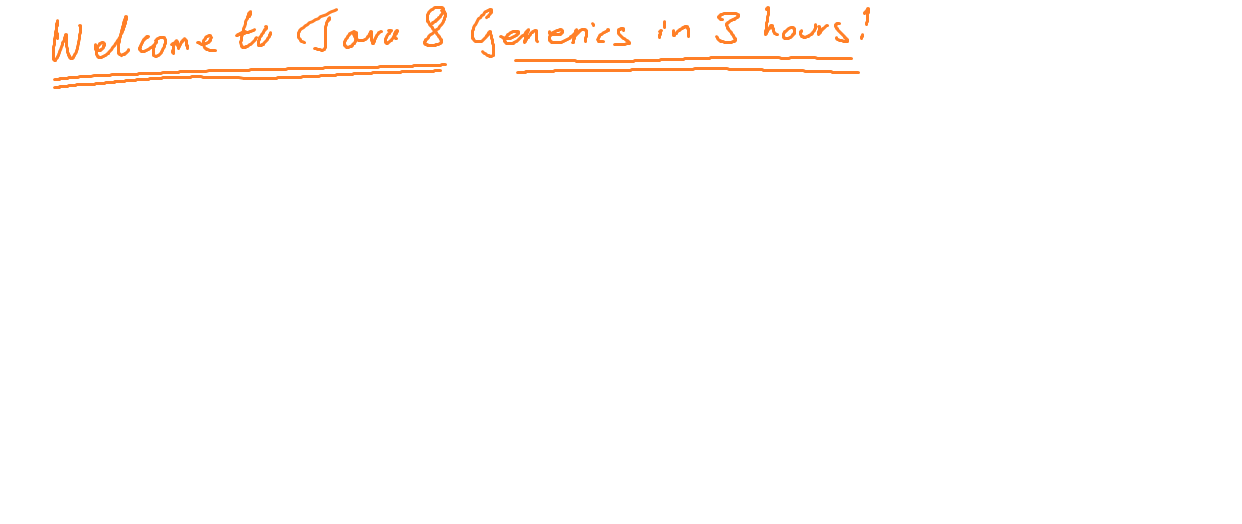 Welcome to Java 8 Generics in 3 hours!